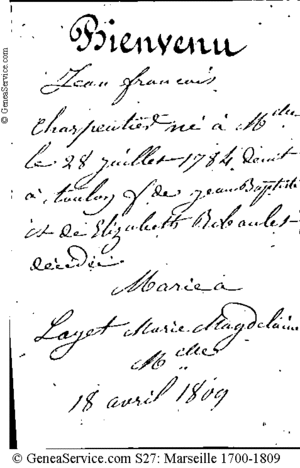 Bienvenu
Jean francois
Charpentier né à M
le 28 juillet 1784 demt
à toulon f. de jean Baptiste
et de Elizabeth
décédée
Marié à
Layet Marie Magdelaine
Mlle
18 avril 1809
© GeneaService.com
© GeneaService.com
© GeneaService.com S27: Marseille 1700-1809